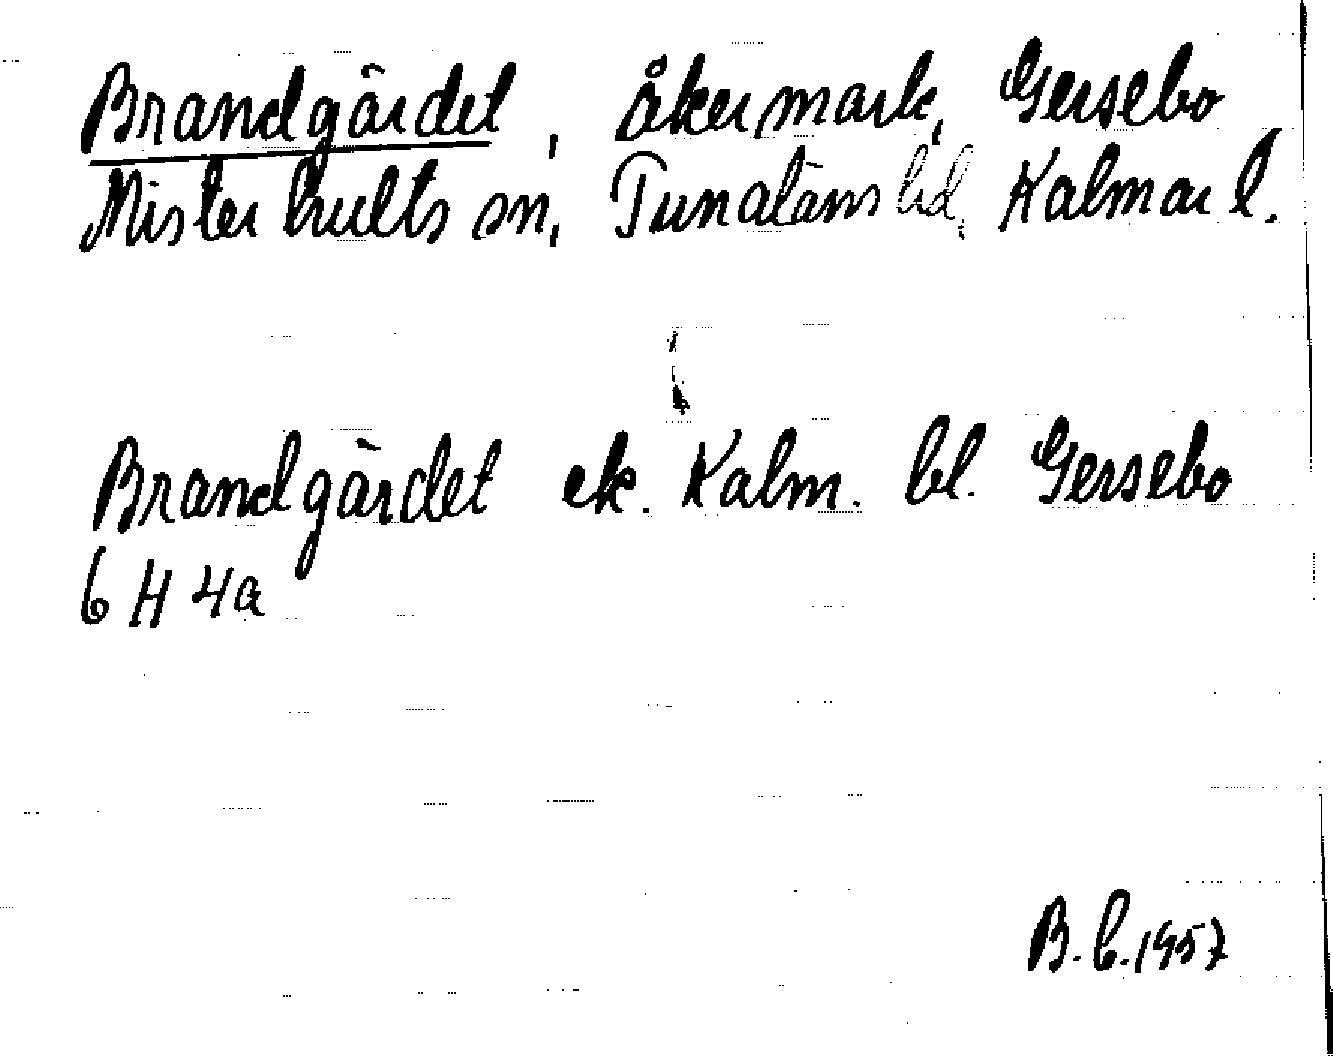 Brandgärdet, åkermark, Gersebo
Misterhults sn, Tunaläns hd, Kalmar l.
Brandgärdet ek. Kalm. bl. Gersebo
6 H 4a
B. C. 1957